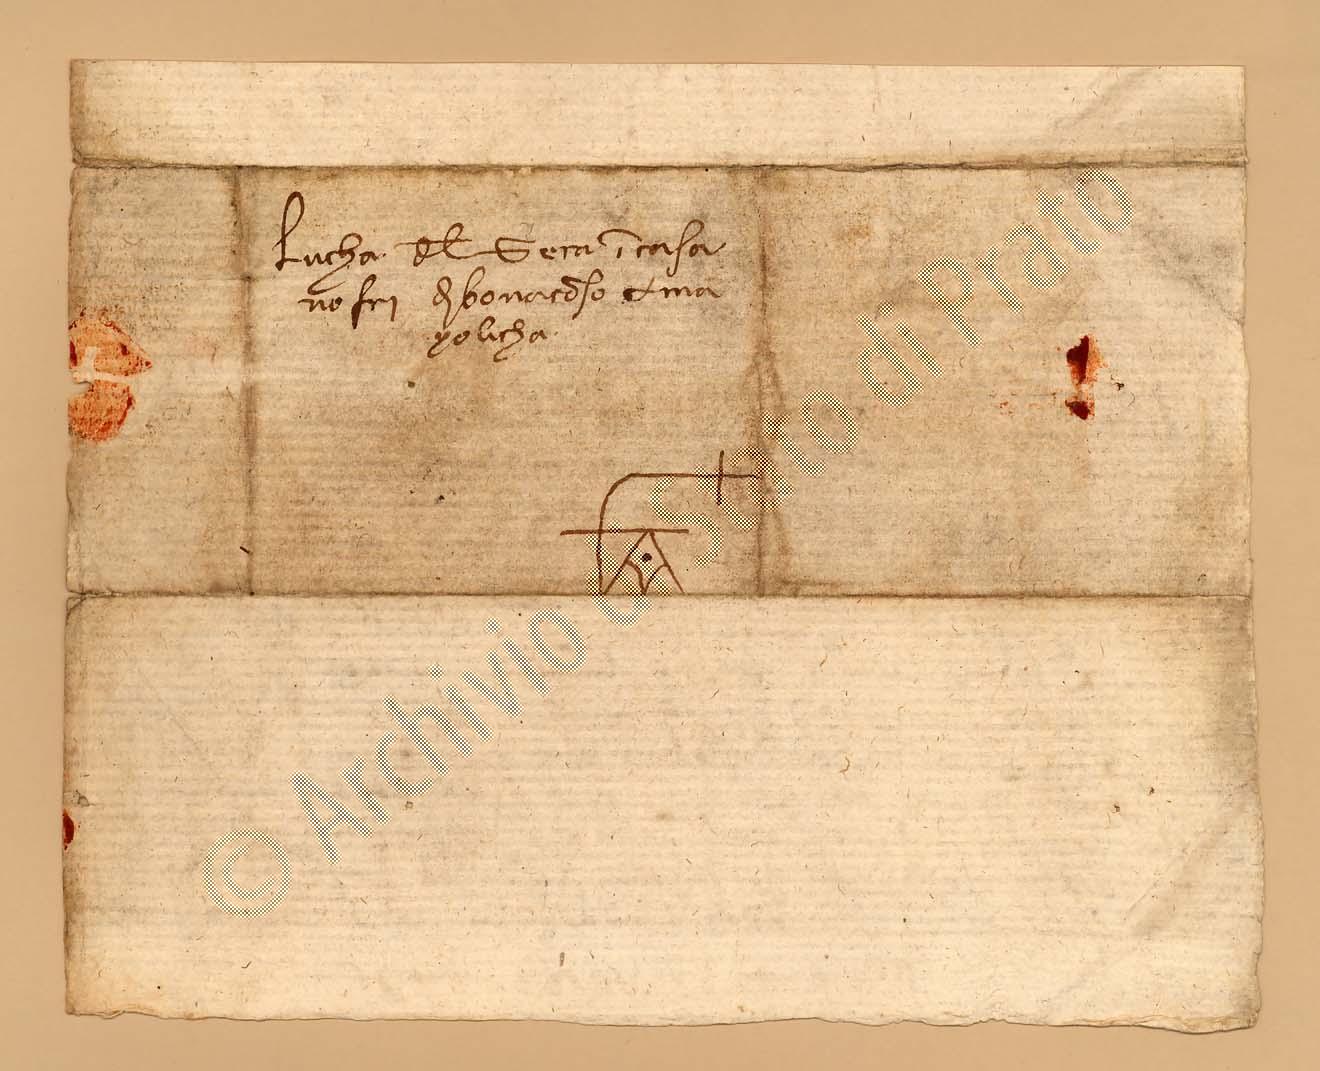 Lucha del Sera i chasa
nofri di bonacorso i ma
yolicha
© Archivio di Stato di Prato